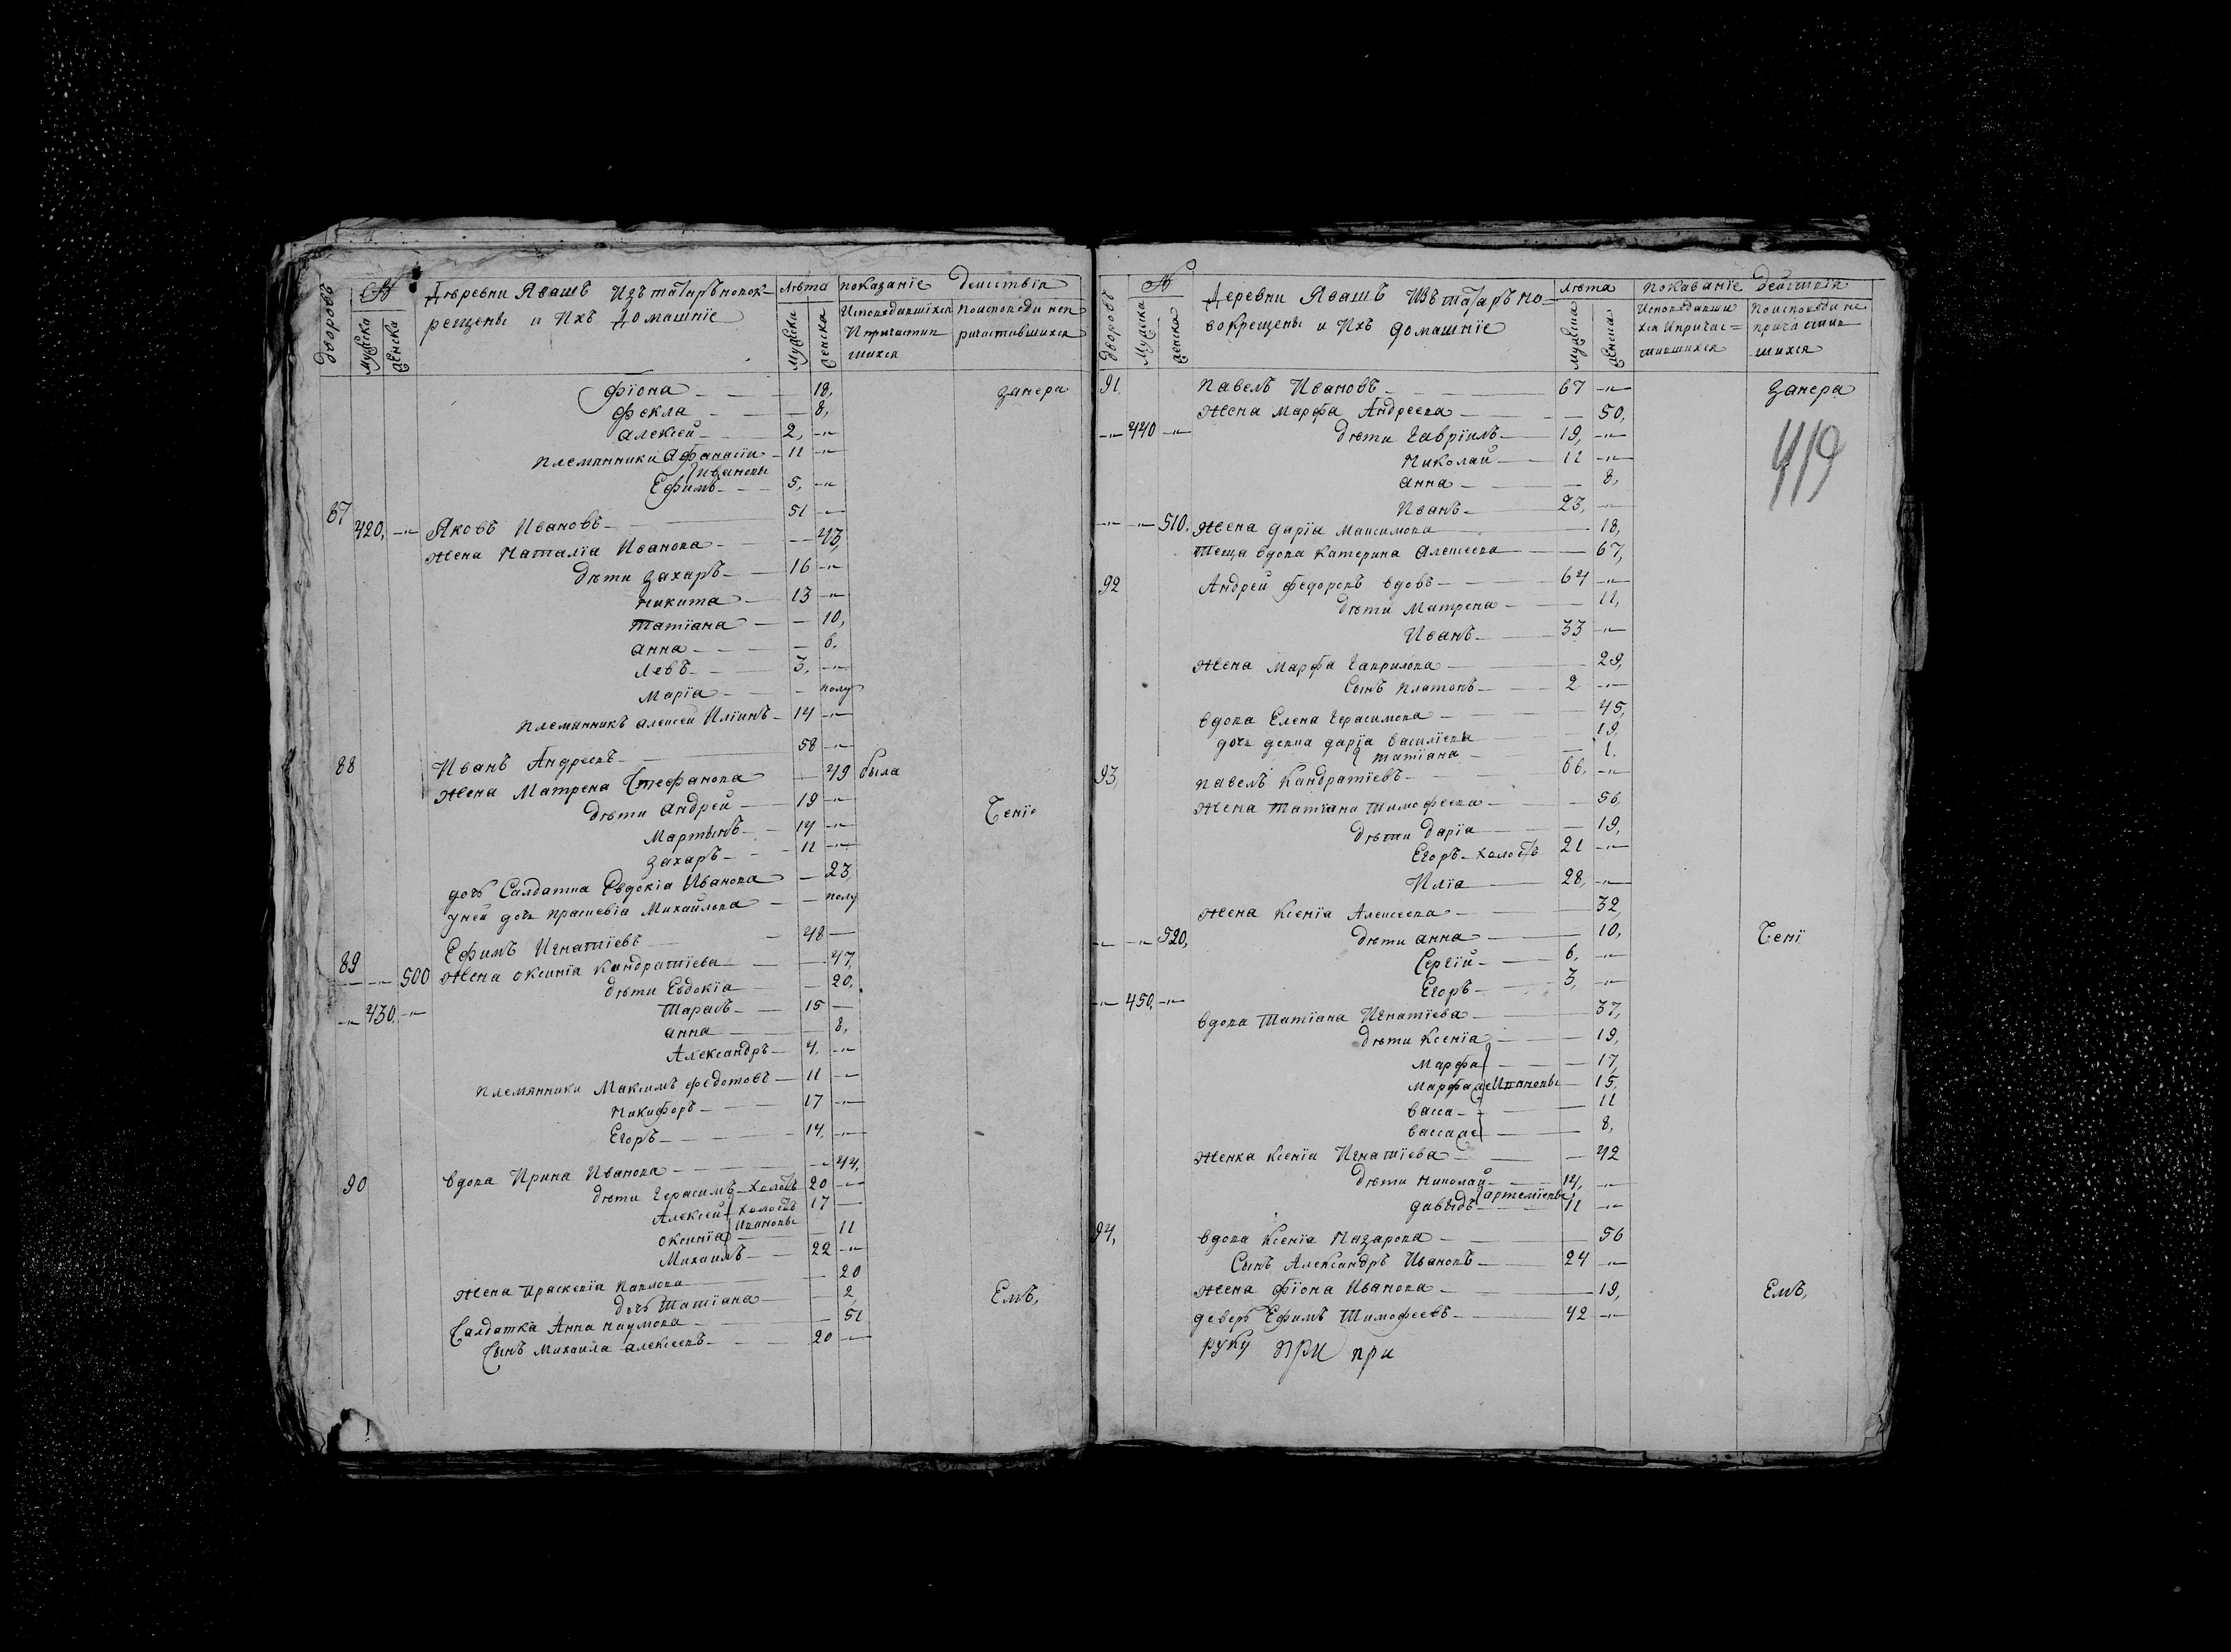 дворовъ
№
мужеска
женска
Деревни Явашъ Изъ татаръ новок-
рещены и Ихъ домашніе
Лѣта
мужеска
женска
показаніе Действія
Исповедавшихся
И причастив
шихся
Поисповеди неп
ричастившихся
Фіона 18, занера
Фекла 8,
Алексей 2,
племянники Афанасіи 11
Ивановы
Ефимъ 5,
87 Яковъ Ивановъ 51
420, жена Наталіа Иванова 43,
дѣти Захаръ 16
Никита 13
Татіана 10,
Анна 6,
Левъ 3,
Маріа полу
племянникъ Алексей Иліинъ 14
88 Иванъ Андреевъ 58
жена Матрена Стефанова 49 была
дѣти Андрей 19 Теніе
Мартынъ 14
Захаръ 11
дочь Салдатка Евдокіа Иванова 23,
уней дочь прасковіа Михайлова полу
89 Ефимъ Игнатіевъ 48
500 жена Оксиніа Кондратіева 47,
дѣти Евдокіа 20,
430, Тарасъ 15
Анна 8,
Александръ 4,
племянники Максимъ Федотовъ 11
Никифоръ 17
Егоръ 14,
90 вдова Ирина Иванова 44,
дѣти Герасимъ холостъ 20
Алексей холостъ 17
Ивановы
Оксиніа 11
Михаилъ 22
жена Прасковіа Павлова 20
дочь Татіана 2,
Салдатка Анна Наумова 51
Сынъ Михаила Алексеевъ 20
Емъ,
дворовъ
№
мужеска
женска
Деревни Явашъ Изъ татаръ но-
вокрещены и Ихъ домашніе
лѣта
мужеска
женска
показаніе Действія
Исповедавши
хся Ипричас=
тившихся
Поисповеди не
причастив
шихся
91, павелъ Ивановъ 67 занера
419
жена Марфа Андреева 50,
440 дѣти Гавріилъ 19,
Николай 11
Анна 8,
Иванъ 23,
510, жена Даріа Максимова 18,
Теща вдова Катерина Алексеева 67,
92 Андрей Федоровъ вдовъ 64
дѣти Матрена 11,
Иванъ 33
жена Марфа Гаврилова 29,
Сынъ Платонъ 2
вдова Елена Герасимова 45,
дочь девка Даріа Василіевы 19,
Татіана 1.
93, павелъ Кандратіевъ 66,
жена Татіана Тимофеева 56,
дѣти Даріа 19,
Егоръ холостъ 21
Иліа 28,
жена Ксеніа Алексеева 32,
520, дѣти Анна 10, Тені
Сергій 6,
Егоръ 3,
450, вдова Татіана Игнатіева 37,
дѣти Ксеніа 19,
Марфа 17,
Марфа Ивановы 15,
Васса 11
Васса 8,
женка Ксеніа Игнатіева 42
дѣти Николай 14,
Артеміевы
Давыдъ 11
94, вдова Ксеніа Назарова 56
Сынъ Александръ Ивановъ 24
жена Фіона Иванова 19, Емъ,
деверь Ефимъ Тимофеевъ 42
руку при при